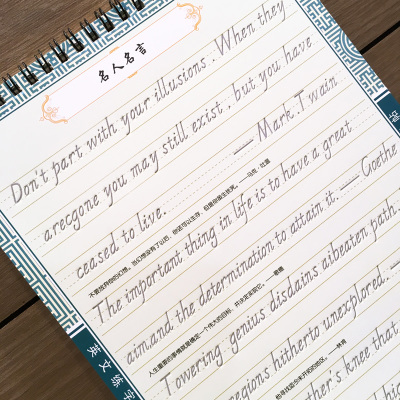 名人名言
Don't part with your illusions . When they
arecgone you may still exist , but you have
ceased to live. —— Mark.T.wain
不要放弃你的幻想。当幻想没有了以后，你还可以生存，但是你虽生犹死。——马克·吐温
The important thing in life is to have a great
aim.and the determination to attain it. —— Goethe
人生重要的事情就是确定一个伟大的目标，并决定实现它。——歌德
Towering. genius disdains aibeaten path.
regions hitherto unexplored. —
——林肯
ther's knee that
英文练字